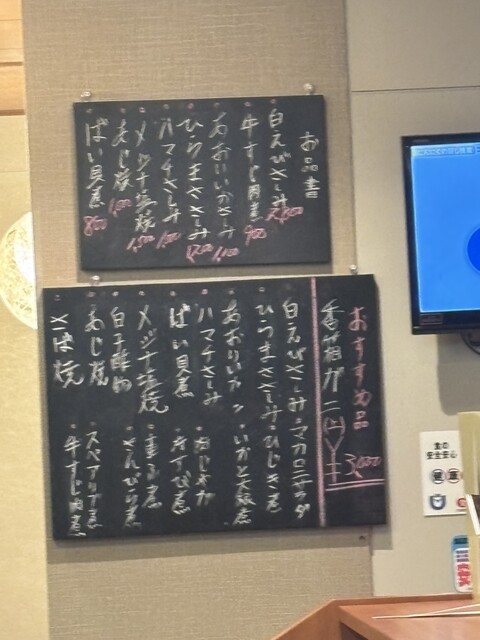 お品書
白えびさしみ 2,800
牛すじ肉煮 900
あおりいかさしみ 1,100
ひらまささしみ 1,200
ハマチさしみ
メジナ塩焼 1,500
あじ焼 1,000
ばい貝煮 800
おすすめ品
香箱ガニ
3,000
白えびさしみ・マカロニサラダ
ひらまささしみ・ひじき煮
あおりいか ・いかと大根煮
ハマチさしみ ・肉じゃが
ばい貝煮
メジナ塩焼
白子酢物 ・きんぴら煮
あじ焼 ・スペアリブ煮
さば焼 ・牛すじ肉煮
食の
安全安心
健
康